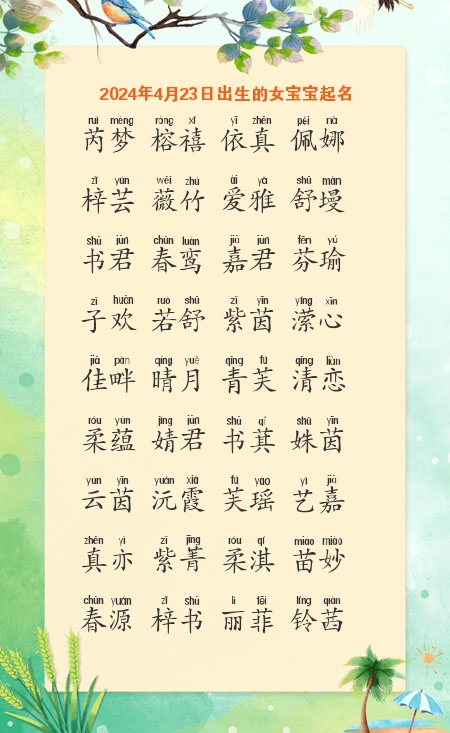 2024年4月23日出生的女宝宝起名
ruì mèng róng xǐ yī zhēn pèi nà
芮梦 榕禧 依真 佩娜
zǐ yún wēi zhú ài yǎ shū màn
梓芸 薇竹 爱雅 舒墁
shū jūn chūn luán jiā jūn fēn yú
书君 春鸾 嘉君 芬瑜
zǐ huān ruò shū zǐ yīn yíng xīn
子欢 若舒 紫茵 潆心
jiā pàn qíng yuè qīng fú qīng liàn
佳畔 晴月 青芙 清恋
róu yùn jìng jūn shū qí shū yīn
柔蕴 婧君 书萁 姝茵
yún yīn yuán xiá fú yáo yì jiā
云茵 沅霞 芙瑶 艺嘉
zhēn yì zǐ jīng róu qí miáo miào
真亦 紫菁 柔淇 苗妙
chūn yuán zǐ shū lì fēi líng qiàn
春源 梓书 丽菲 铃茜